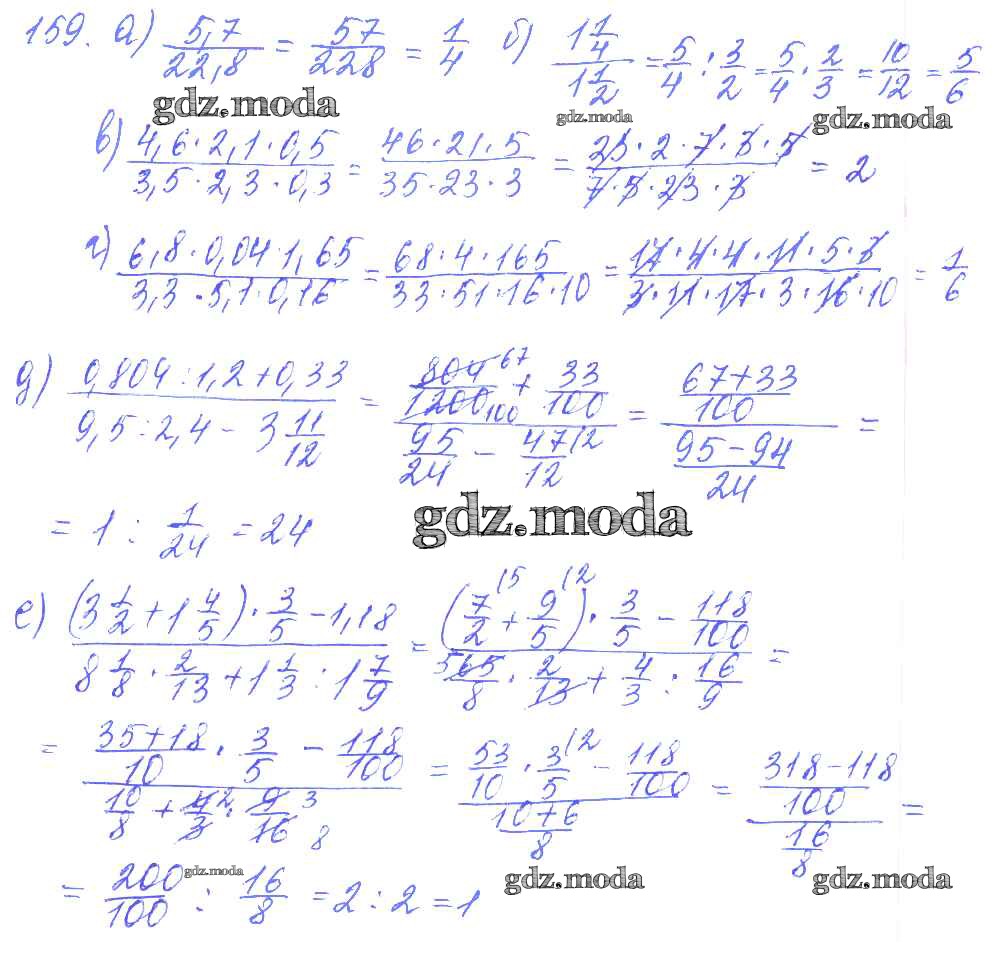 159. а) 5,7/22,8 = 57/228 = 1/4 б) 1 1/4 / 1 1/2 = 5/4 : 3/2 = 5/4 · 2/3 = 10/12 = 5/6
gdz.moda gdz.moda gdz.moda
в) 4,6·2,1·0,5 / 3,5·2,3·0,3 = 46·21·5 / 35·23·3 = 23·2·7·3·5 / 7·5·23·3 = 2
г) 6,8·0,04·1,65 / 3,3·5,1·0,16 = 68·4·165 / 33·51·16·10 = 17·4·4·11·5·3 / 3·11·17·3·16·10 = 1/6
д) 0,804:1,2+0,33 / 9,5:2,4 - 3 11/12 = 804/1200 67/100 + 33/100 / 95/24 - 47/12 (2 = 67+33/100 / 95-94/24 =
= 1 : 1/24 = 24
gdz.moda
е) (3 1/2 + 1 4/5) · 3/5 - 1,18 / 8 1/8 · 2/13 + 1 1/3 : 1 7/9 = (7/2 (5 + 9/5 (2) · 3/5 - 118/100 / 5 65/8 · 2/13 + 4/3 : 16/9 =
= 35+18/10 · 3/5 - 118/100 / 10/8 + 4/3 2 · 9/16 3 8 = 53/10 · 3/5 (2 - 118/100 / 10+6/8 = 318-118/100 / 16/8 =
= 200/100 : 16/8 = 2 : 2 = 1
gdz.moda gdz.moda gdz.moda